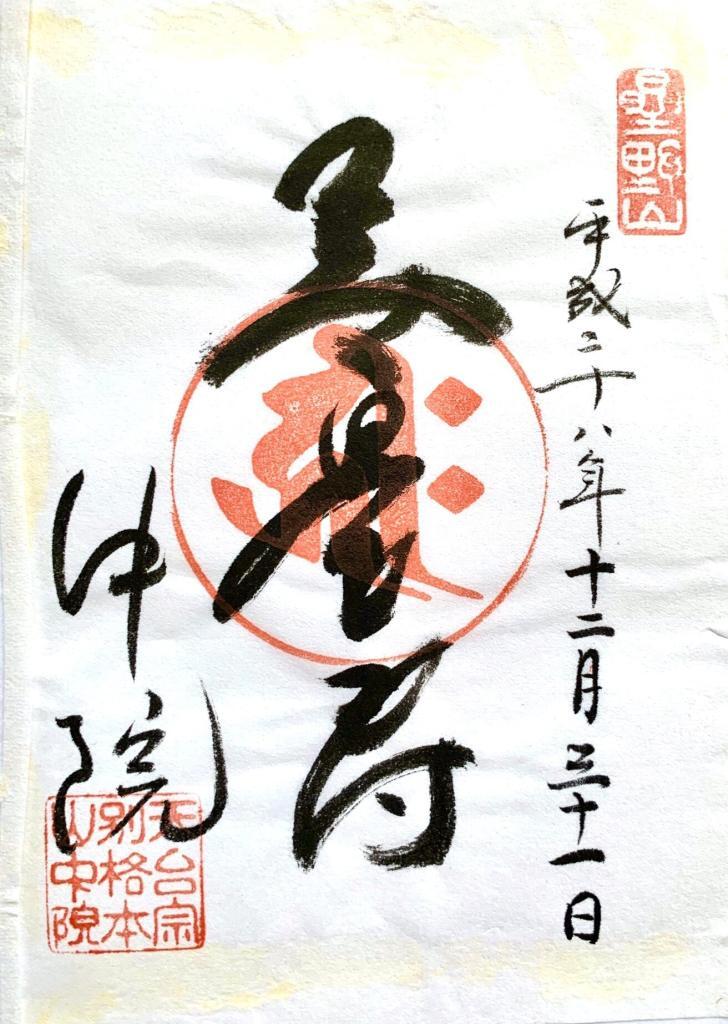 星野山
平成二十八年十二月三十一日
無量寿
中院
天台宗
別格本
山中院